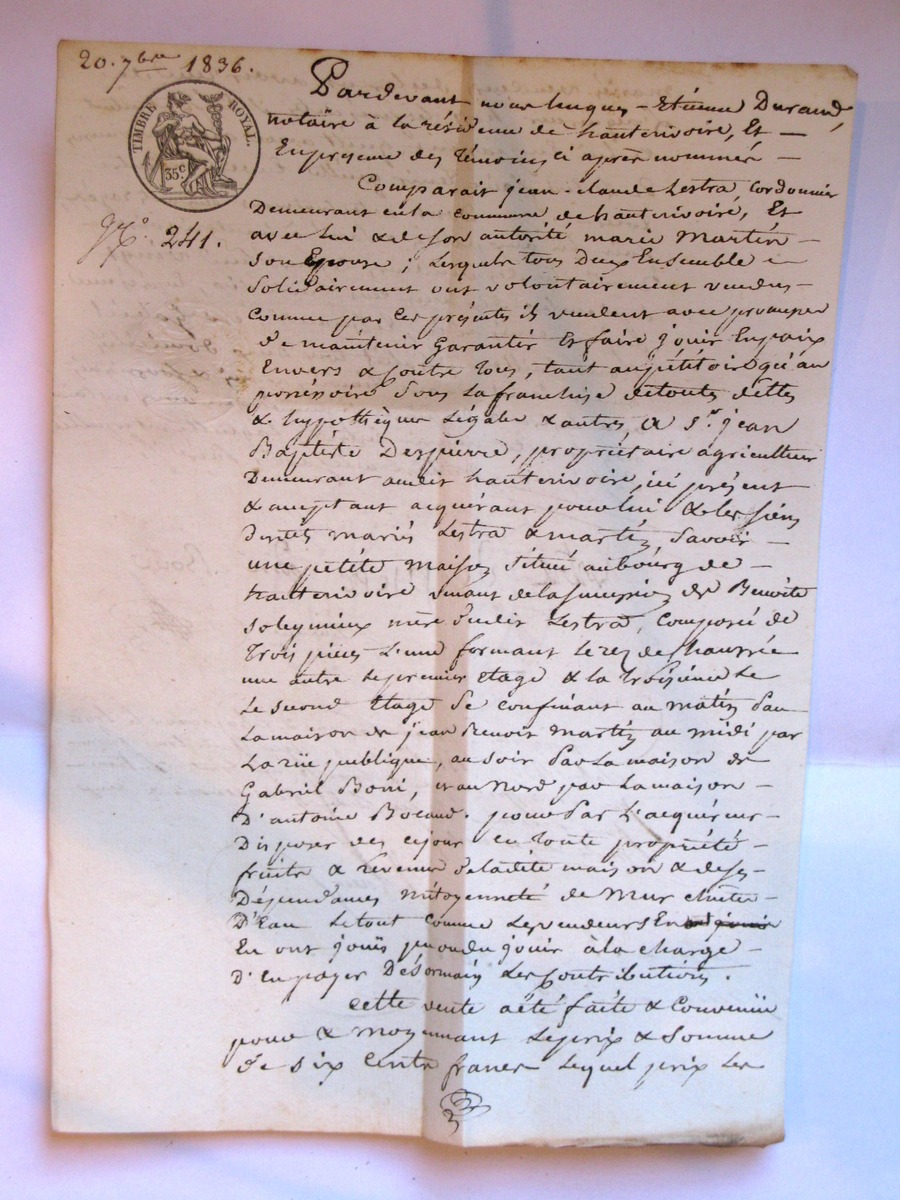 20. 7bre 1836.
TIMBRE ROYAL.
35c
No 241.
Pardevant nous hugues - Etienne Durand,
notaire à la résidence de hauterivoire, Et —
En présence des témoins ci après nommés —
Comparait jean-claude Lestra Cordonnier
Demeurant en la commune de hauterivoire, Et
avec lui & de son autorité marie Martin —
son Epouse, Lesquels tous Deux Ensemble
Solidairement ont volontairement vendus —
Comme par ces présentes ils vendent avec promesse
De maintenir Garantir Et faire jouir En paix
Envers & Contre tous, tant au pétitoire qu'au
possessoire Sous La franchise de toutes dettes
& hypothèques Légales & autres a Sr. jean
Baptiste Despierre, propriétaire agriculteur
Demeurant audit hauterivoire, ici présent
& acceptant acquérant pour lui & les siens
Desdits mariés Lestra & martin, Savoir —
une petite maison située au bourg de —
hauterivoire venant de la succession de Benoite
Soleymieux mère dudit Lestra, Composée de
trois pièces L'une formant Le rez de chaussée
une autre Le premier Etage & la troisième Le
Le second Etage Se confinant au matin par
La maison de jean Benoit martin au midi par
La rue publique, au soir par La maison de
Gabriel Bory, et au Nord par La maison —
D'antoine . pour par L'acquéreur —
Disposer des ce jour en toute propriété —
fruits & revenus de ladite maison & de ses —
Dépendances mitoyenneté de mur chûte —
D'Eau Le tout comme Les vendeurs
En ont jouis pu ou du jouir à la charge —
D'En payer Désormais Les Contributions.
Cette vente a été faite & Convenüe
pour & moyennant Le prix & Somme
De six Cents francs Lequel prix Les